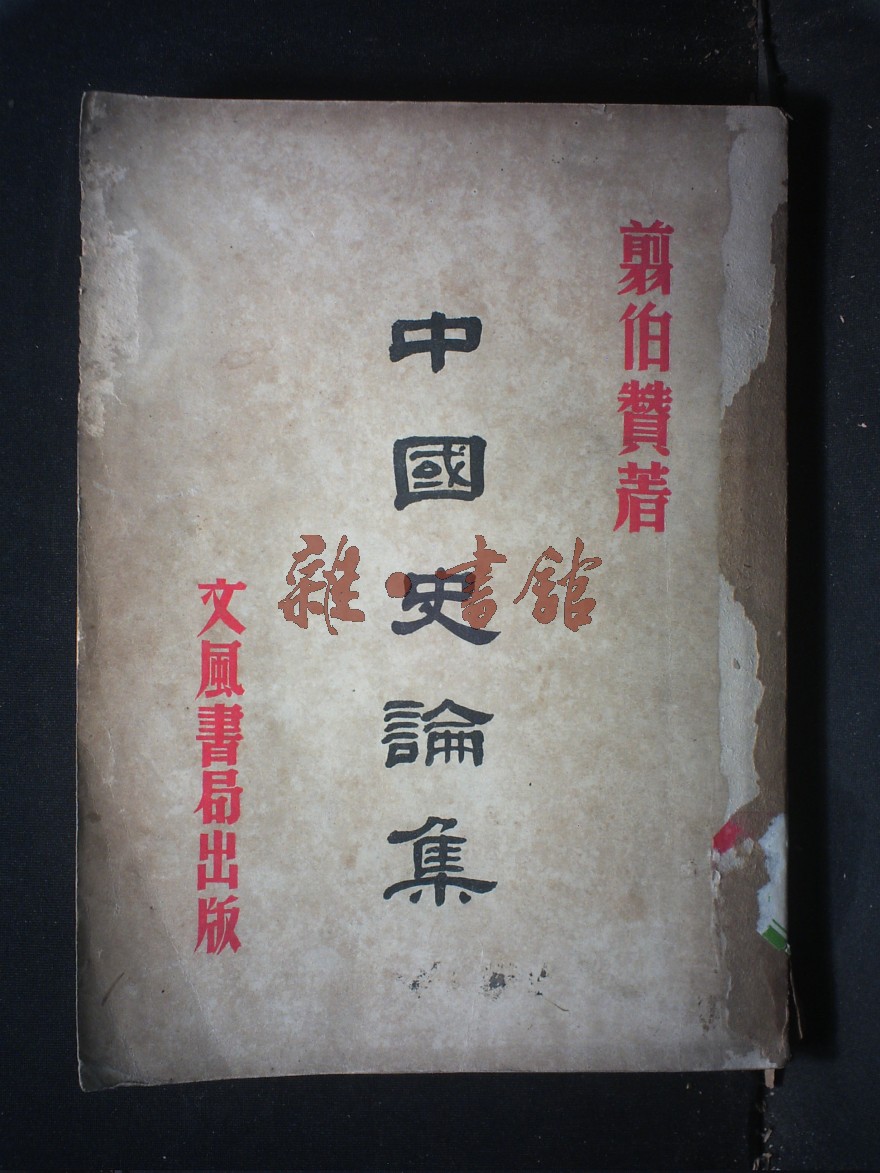 翦伯贊著
中國史論集
文風書局出版
雜·書館